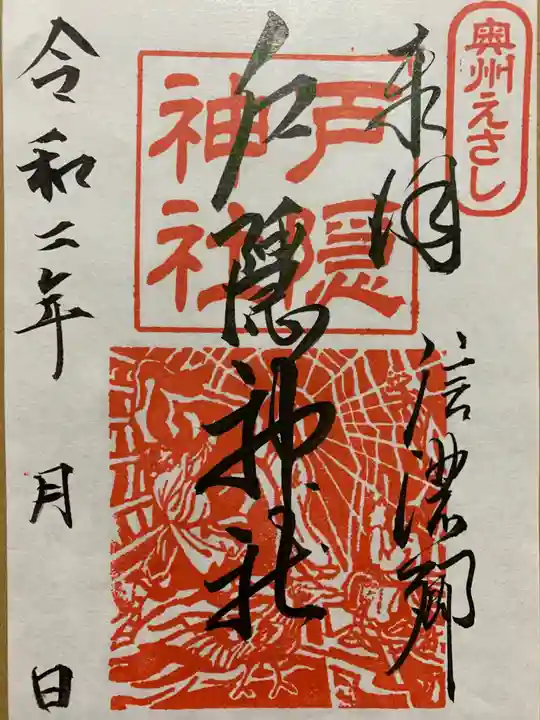 奥州えさし
奉拝
信濃郷
戸隠
神社
戸隠神社
令和二年 月 日